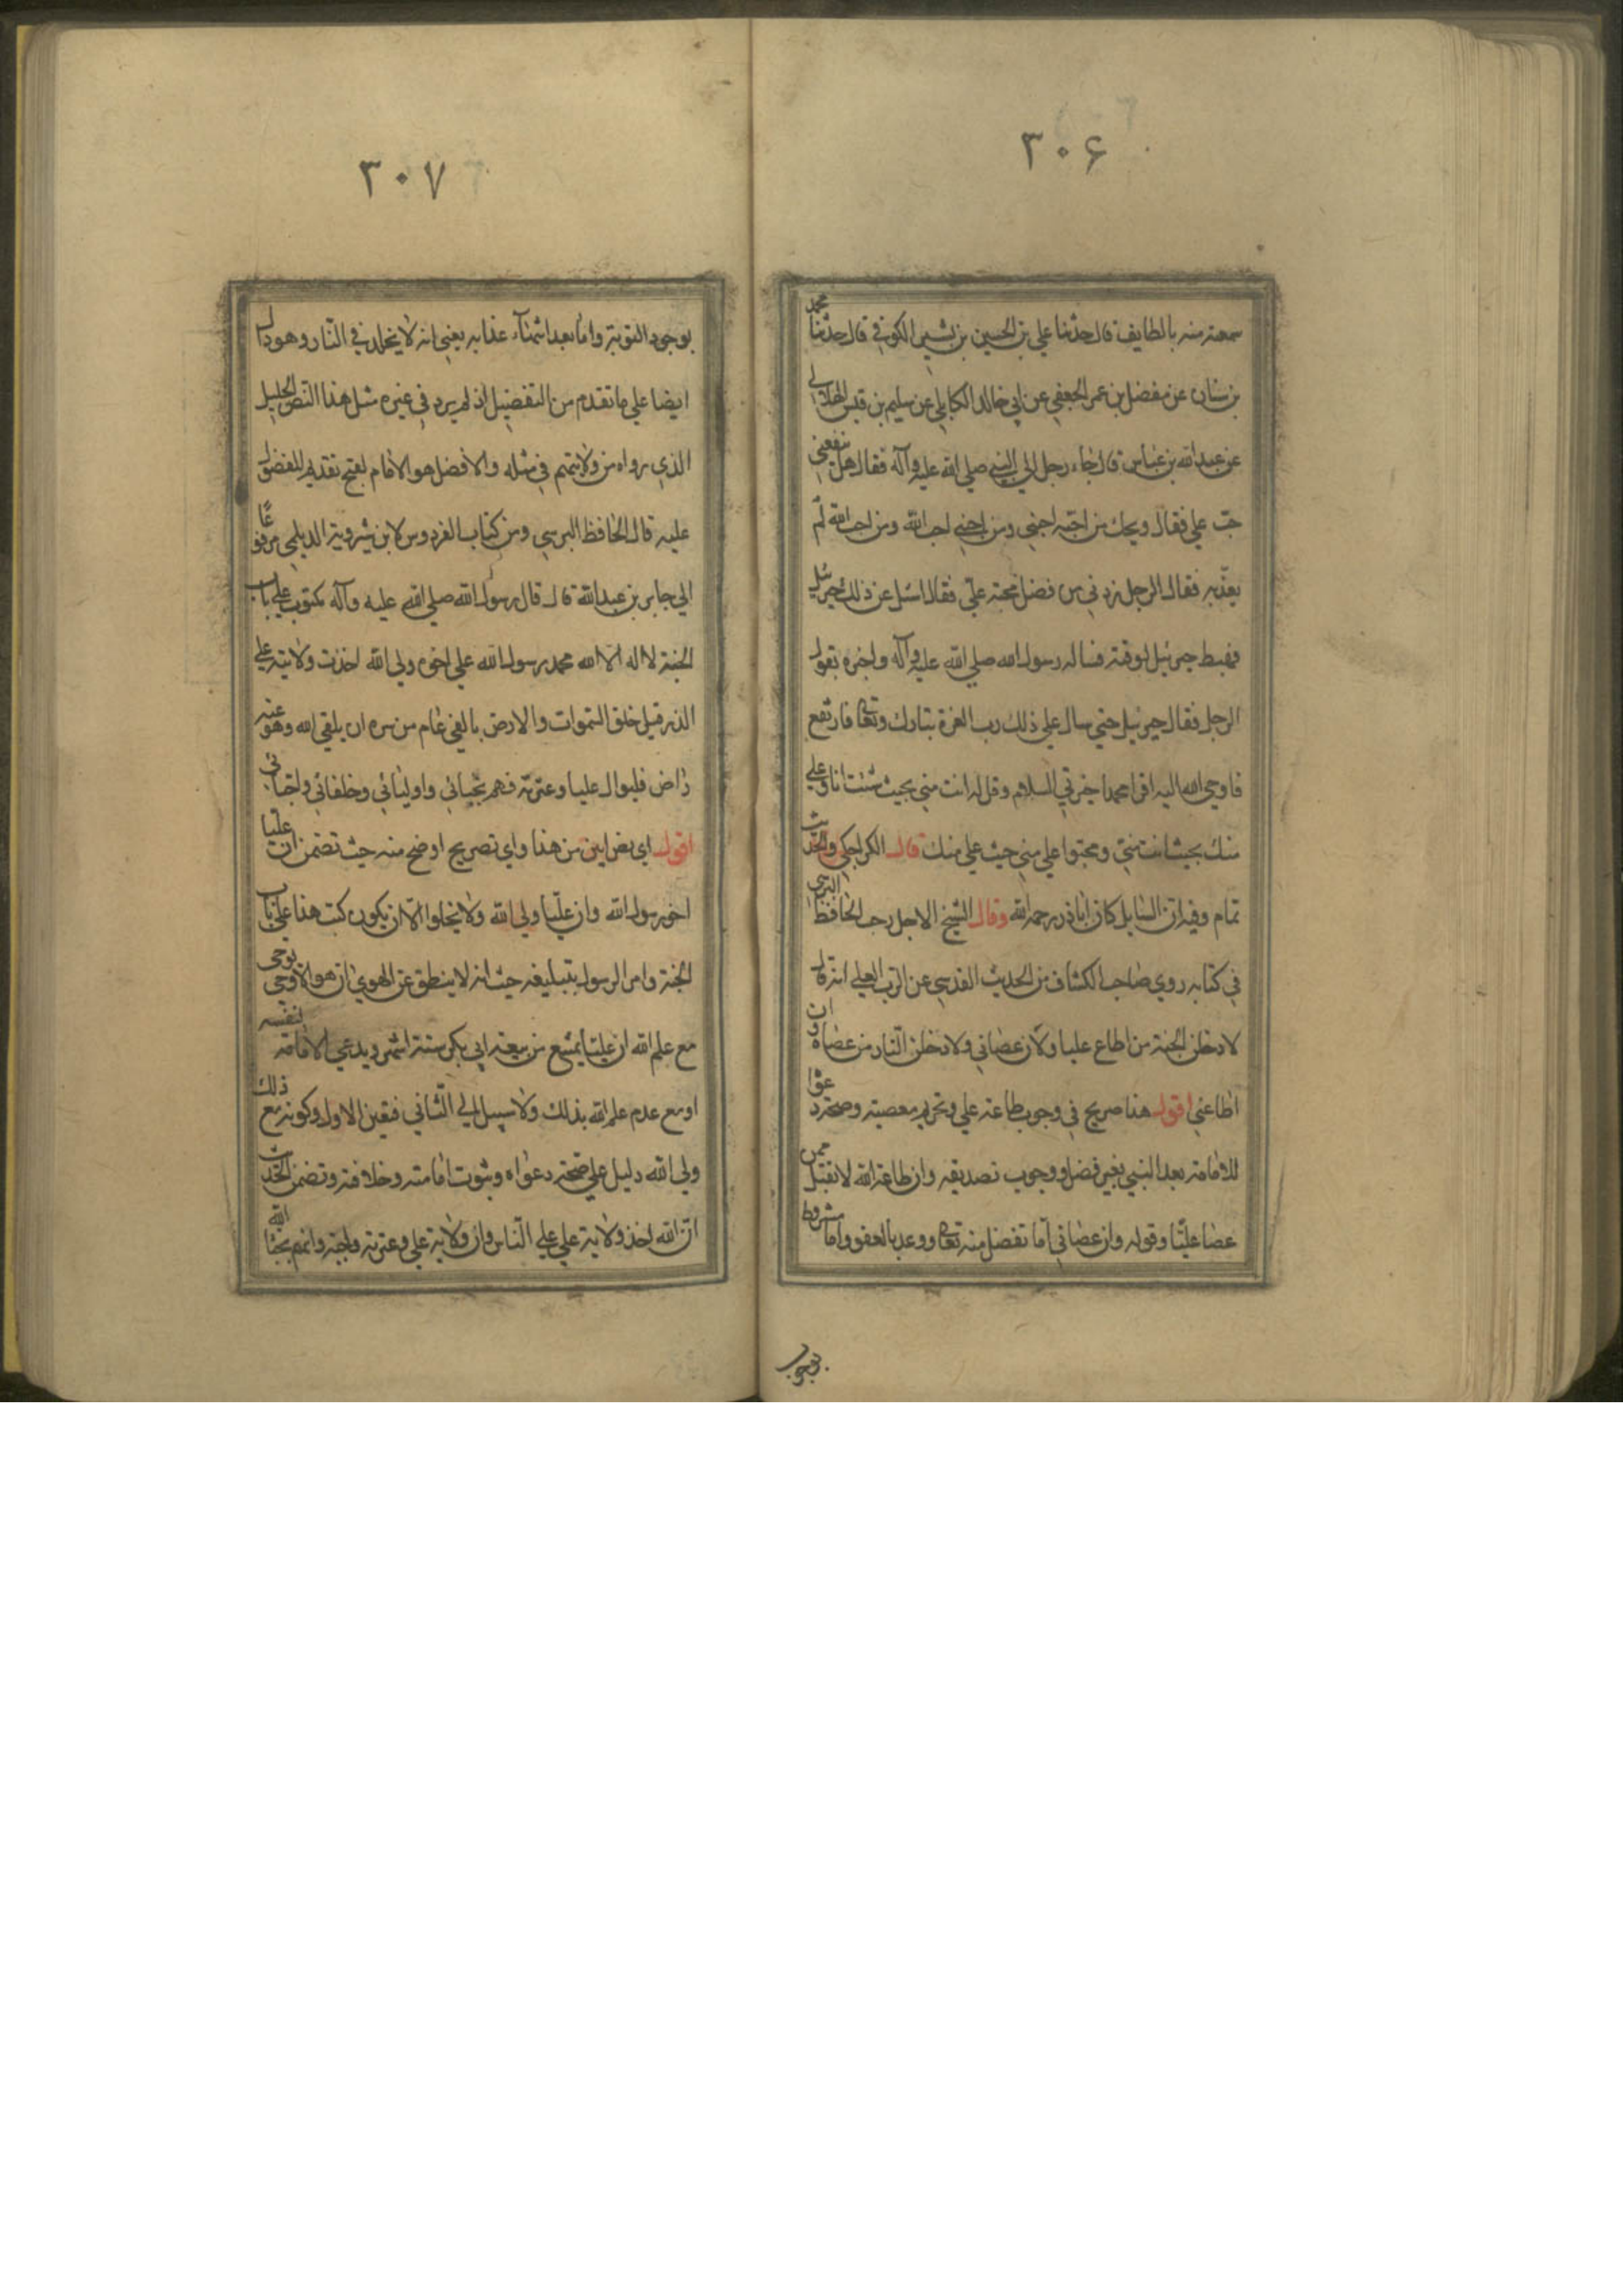 ٣٠۶
سمعته منه بالطايف قال حدثنا علي بن الحسين بن بشير الكوفي قال حدثنا محمد
بن سنان عن مفضل بن عمر الجعفي عن ابي خالد الكابلي عن سليم بن قيس الهلالي
عن عبد الله بن عباس قال جاء رجل الي النبي صلي الله عليه وآله فقال هل ينفعني
حب علي فقال ويحك من احبه احبني ومن احبني احب الله ومن احب الله لم
يعذبه فقال الرجل زدني من فضل محبة علي فقال اسئل عن ذلك جبرئيل
فهبط جبرئيل لوقته فساله رسول الله صلي الله عليه وآله واخبره بقول
الرجل فقال جبرئيل حتي سال علي ذلك رب العزة تبارك وتعالى فارتفع
فاوحي الله اليه اقرا محمدا خيرتي السلام وقل له انت مني بحيث شئت انا وعلي
منك بحيث انت مني ومحبوا علي مني حيث علي منك قال الكراجكي والحديث
تمام وفيه ان السايل كان اباذر رحمه الله وقال الشيخ الاجل رجب الحافظ البرسي
في كتابه روي صاحب الكشاف من الحديث القدسي عن الرب العلي انه قال
لادخلن الجنة من اطاع عليا وان عصاني ولادخلن النار من عصاه وان
اطاعني اقول هذا صريح في وجوب طاعة علي وتحريم معصيته وصحة دعوا
للامامة بعد النبي بغير فصل ووجوب تصديقه وان طاعة الله لا تقبل ممن
عصا عليا وقوله وان عصاني اما تفضل منه تعالى ووعد بالعفو واما مشروط
بوجود
٣٠٧
بوجود التوبة واما بعد اثمناء عذابه يعني انه لا يخلد في النار وهو دال
ايضا علي ما تقدم من التفضيل اذ لم يرد في غيره مثل هذا النص الجليل
الذي رواه من ولا يتهم في مثله والافضل هو الامام لقبح تقديم المفضول
عليه قال الحافظ البرسي ومن كتاب الفردوس لابن شيروية الديلمي مرفوعا
الي جابر بن عبد الله قال قال رسول الله صلي الله عليه وآله مكتوب علي باب
الجنة لا اله الا الله محمد رسول الله علي اخوه ولي الله اخذت ولايته علي
الذر قبل خلق السموات والارض بالفي عام من سره ان يلقي الله وهو عنه
راض فليوال عليا وعترته فهم نجبائي واوليائي وخلفائي واحبائي
اقول اي نص ابين من هذا واي تصريح اوضح منه حيث تضمن ان عليا
اخو رسول الله وان عليا ولي الله ولا يخلوا الا ان يكون كتب هذا علي باب
الجنة وامر الرسول بتبليغه حيث انه لا ينطق عن الهوي ان هو الا وحي يوحى
مع علم الله ان عليا يمتنع من بيعة ابي بكر ستة اشهر ويدعي الامامة لنفسه
او مع عدم علم الله بذلك ولا سبيل الي الثاني فتعين الاول وكونه مع ذلك
ولي الله دليل علي صحة دعواه وثبوت امامته وخلافته وتضمن الحديث
ان الله اخذ ولاية علي علي الناس وان ولاية علي وعترته واجبة وانهم نجباء الله